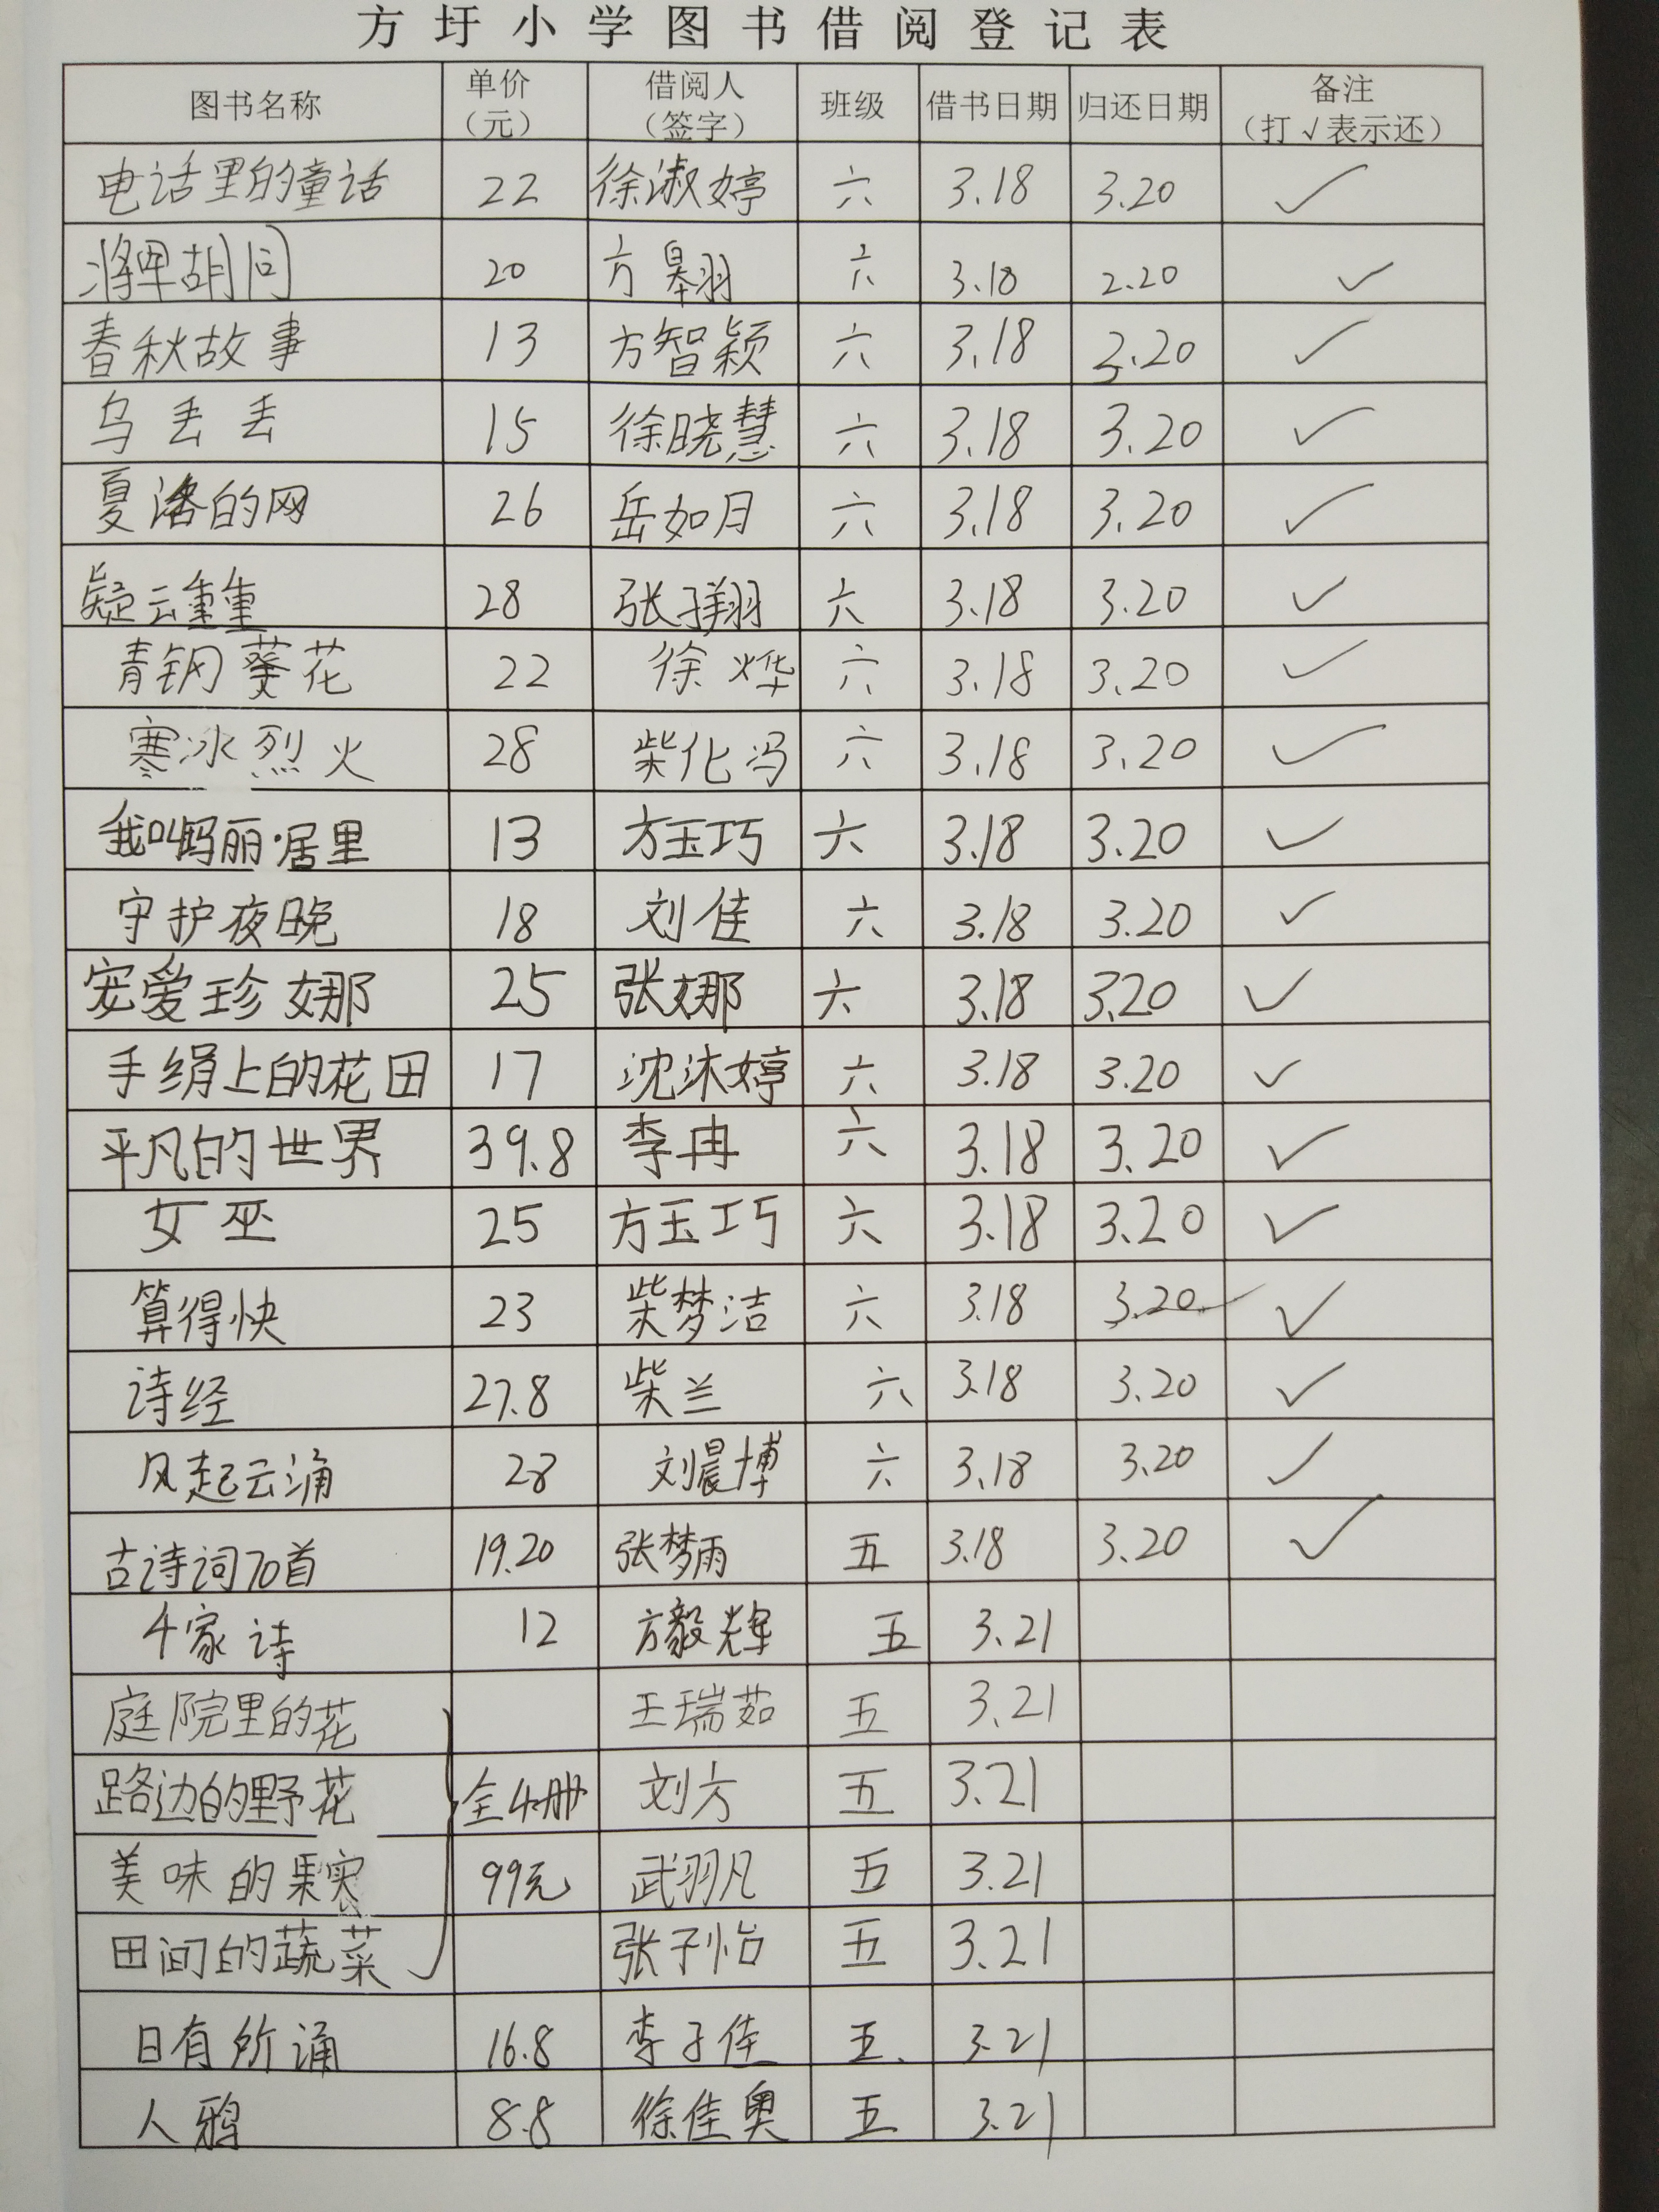 方圩小学图书借阅登记表
图书名称 单价（元） 借阅人（签字） 班级 借书日期 归还日期 备注（打√表示还）
电话里的童话 22 徐淑婷 六 3.18 3.20 ✓
将军胡同 20 方翱 六 3.18 2.20 ✓
春秋故事 13 方智颖 六 3.18 3.20 ✓
乌丢丢 15 徐晓慧 六 3.18 3.20 ✓
夏洛的网 26 岳如月 六 3.18 3.20 ✓
疑云重重 28 张子翔 六 3.18 3.20 ✓
青铜葵花 22 徐烨 六 3.18 3.20 ✓
寒冰烈火 28 柴化冯 六 3.18 3.20 ✓
我叫玛丽·居里 13 方玉巧 六 3.18 3.20 ✓
守护夜晚 18 刘佳 六 3.18 3.20 ✓
宠爱珍娜 25 张娜 六 3.18 3.20 ✓
手绢上的花田 17 沈沐婷 六 3.18 3.20 ✓
平凡的世界 39.8 李冉 六 3.18 3.20 ✓
女巫 25 方玉巧 六 3.18 3.20 ✓
算得快 23 柴梦洁 六 3.18 3.20 ✓
诗经 27.8 柴兰 六 3.18 3.20 ✓
风起云涌 28 刘晨博 六 3.18 3.20 ✓
古诗词70首 19.20 张梦雨 五 3.18 3.20 ✓
千家诗 12 方毅辉 五 3.21
庭院里的花 王瑞茹 五 3.21
路边的野花 全4册 刘方 五 3.21
美味的果实 99元 武羽凡 五 3.21
田间的蔬菜 张子怡 五 3.21
日有所诵 16.8 李子佳 五 3.21
人鸦 8.8 徐佳奥 五 3.21